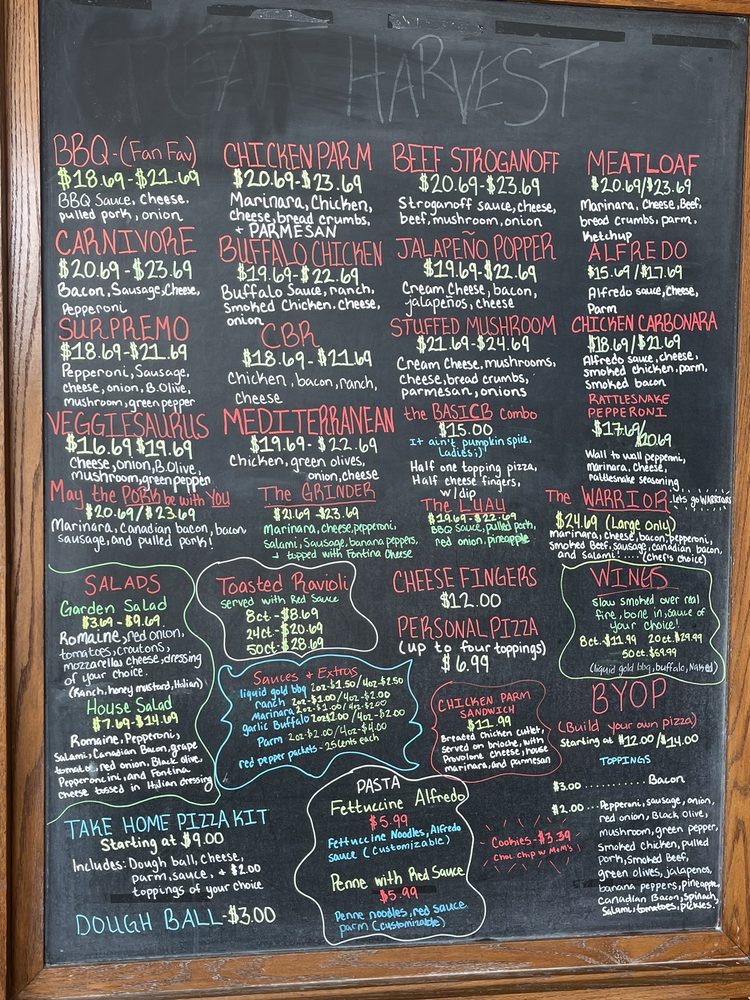 HARVEST
BBQ-(Fan Fav)
$18.69-$21.69
BBQ Sauce, Cheese,
pulled pork, onion
CARNIVORE
$20.69-$23.69
Bacon, Sausage, Cheese,
Pepperoni
SUPREMO
$18.69-$21.69
Pepperoni, Sausage,
cheese, onion, B.Olive,
mushroom, green pepper
VEGGIESAURUS
$16.69 $19.69
Cheese, onion, B.Olive,
mushroom, green peppen
May the PORK be with You
$20.69/$23.69
Marinara, canadian bacon, bacon,
sausage, and pulled pork!
CHICKEN PARM
$20.69-$23.69
Marinara, Chicken,
cheese, bread crumbs,
+ PARMESAN
BUFFALO CHICKEN
$19.69-$22.69
Buffalo Sauce, ranch,
Smoked Chicken, Cheese,
onion
CBR
$18.69-$21.69
Chicken, bacon, ranch,
cheese
MEDITERRANEAN
$19.69-$22.69
chicken, green olives,
onion, cheese
The GRINDER
$21.69-$23.69
Marinara, cheese, pepperoni,
Salami, Sausage, banana peppers,
+ topped with Fontina Cheese
BEEF STROGANOFF
$20.69-$23.69
Stroganoff sauce, cheese,
beef, mushroom, onion
JALAPEÑO POPPER
$19.69-$22.69
Cream Cheese, bacon,
jalapeños, cheese
STUFFED MUSHROOM
$21.69-$24.69
Cream Cheese, mushrooms,
Cheese, bread crumbs,
parmesan, onions
the BASICB combo
$15.00
It ain't pumpkin spice,
Ladies ;)
Half one topping pizza,
Half cheese fingers,
w/dip
The LUAU
$19.69-$22.69
BBQ Sauce, pulled pork,
red onion, pineapple
MEATLOAF
$20.69/$23.69
Marinara, Cheese, Beef,
bread crumbs, parm,
Ketchup
ALFREDO
$15.69/$17.69
Alfredo sauce, cheese,
Parm
CHICKEN CARBONARA
$18.69/$21.69
Alfredo sauce, cheese,
smoked chicken, parm,
Smoked bacon
RATTLESNAKE
PEPPERONI
$17.69/
$20.69
Wall to wall pepperoni,
marinara, cheese,
rattlesnake seasoning
The WARRIOR Lets go WARRIORS
$24.69 (Large only)
Marinara, cheese, bacon, pepperoni,
Smoked Beef, sausage, canadian bacon,
and Salami! .....(Chef's choice)
SALADS
Garden Salad
$3.69-$9.69
Romaine, red onion,
tomatoes, croutons,
mozzarella cheese, dressing
of your choice.
(Ranch, honey mustard, Italian)
House Salad
$7.69-$14.69
Romaine, Pepperoni,
Salami, Canadian Bacon, grape
tomatoe, red onion, Black olive,
Pepperoncini, and Fontina
cheese tossed in Italian dressing
TAKE HOME PIZZA KIT
Starting at $9.00
Includes: Dough ball, Cheese,
parm, sauce, + $2.00
toppings of your choice
DOUGH BALL-$3.00
Toasted Ravioli
served with Red Sauce
8ct-$8.69
24ct-$20.69
50ct-$28.69
Sauces + Extras
liquid gold bbq 2oz-$1.50/4oz-$2.50
ranch 2oz-$1.00/4oz-$2.00
Marinara 2oz-$1.00/4oz-$2.00
garlic Buffalo 2oz$2.00/4oz-$2.00
Parm 2oz-$2.00/4oz-$4.00
red pepper packets-25cents each
PASTA
Fettuccine Alfredo
$5.99
Fettuccine Noodles, Alfredo
sauce (Customizable)
Penne with Red Sauce
$5.99
Penne noodles, red sauce
parm (customizable)
CHEESE FINGERS
$12.00
PERSONAL PIZZA
(up to four toppings)
$6.99
CHICKEN PARM
SANDWICH
$11.99
Breaded Chicken cutlet,
served on brioche, with
Provolone cheese, house
marinara, and parmesan
Cookies-$3.39
Choc chip w M&M's
WINGS
slow smoked over real
fire, bone in, sauce of
your choice!
8ct-$11.99 20ct $29.99
50ct $59.99
(liquid gold bbq, buffalo, Naked)
BYOP
(Build your own pizza)
Starting at $12.00/$14.00
TOPPINGS
$3.00 ........... Bacon
$2.00 .... Pepperoni, sausage, onion,
red onion, Black olive,
mushroom, green pepper,
smoked chicken, pulled
pork, smoked Beef,
green olives, jalapenos,
banana peppers, pineapple,
Canadian Bacon, spinach,
Salami, tomatoes, pickles.